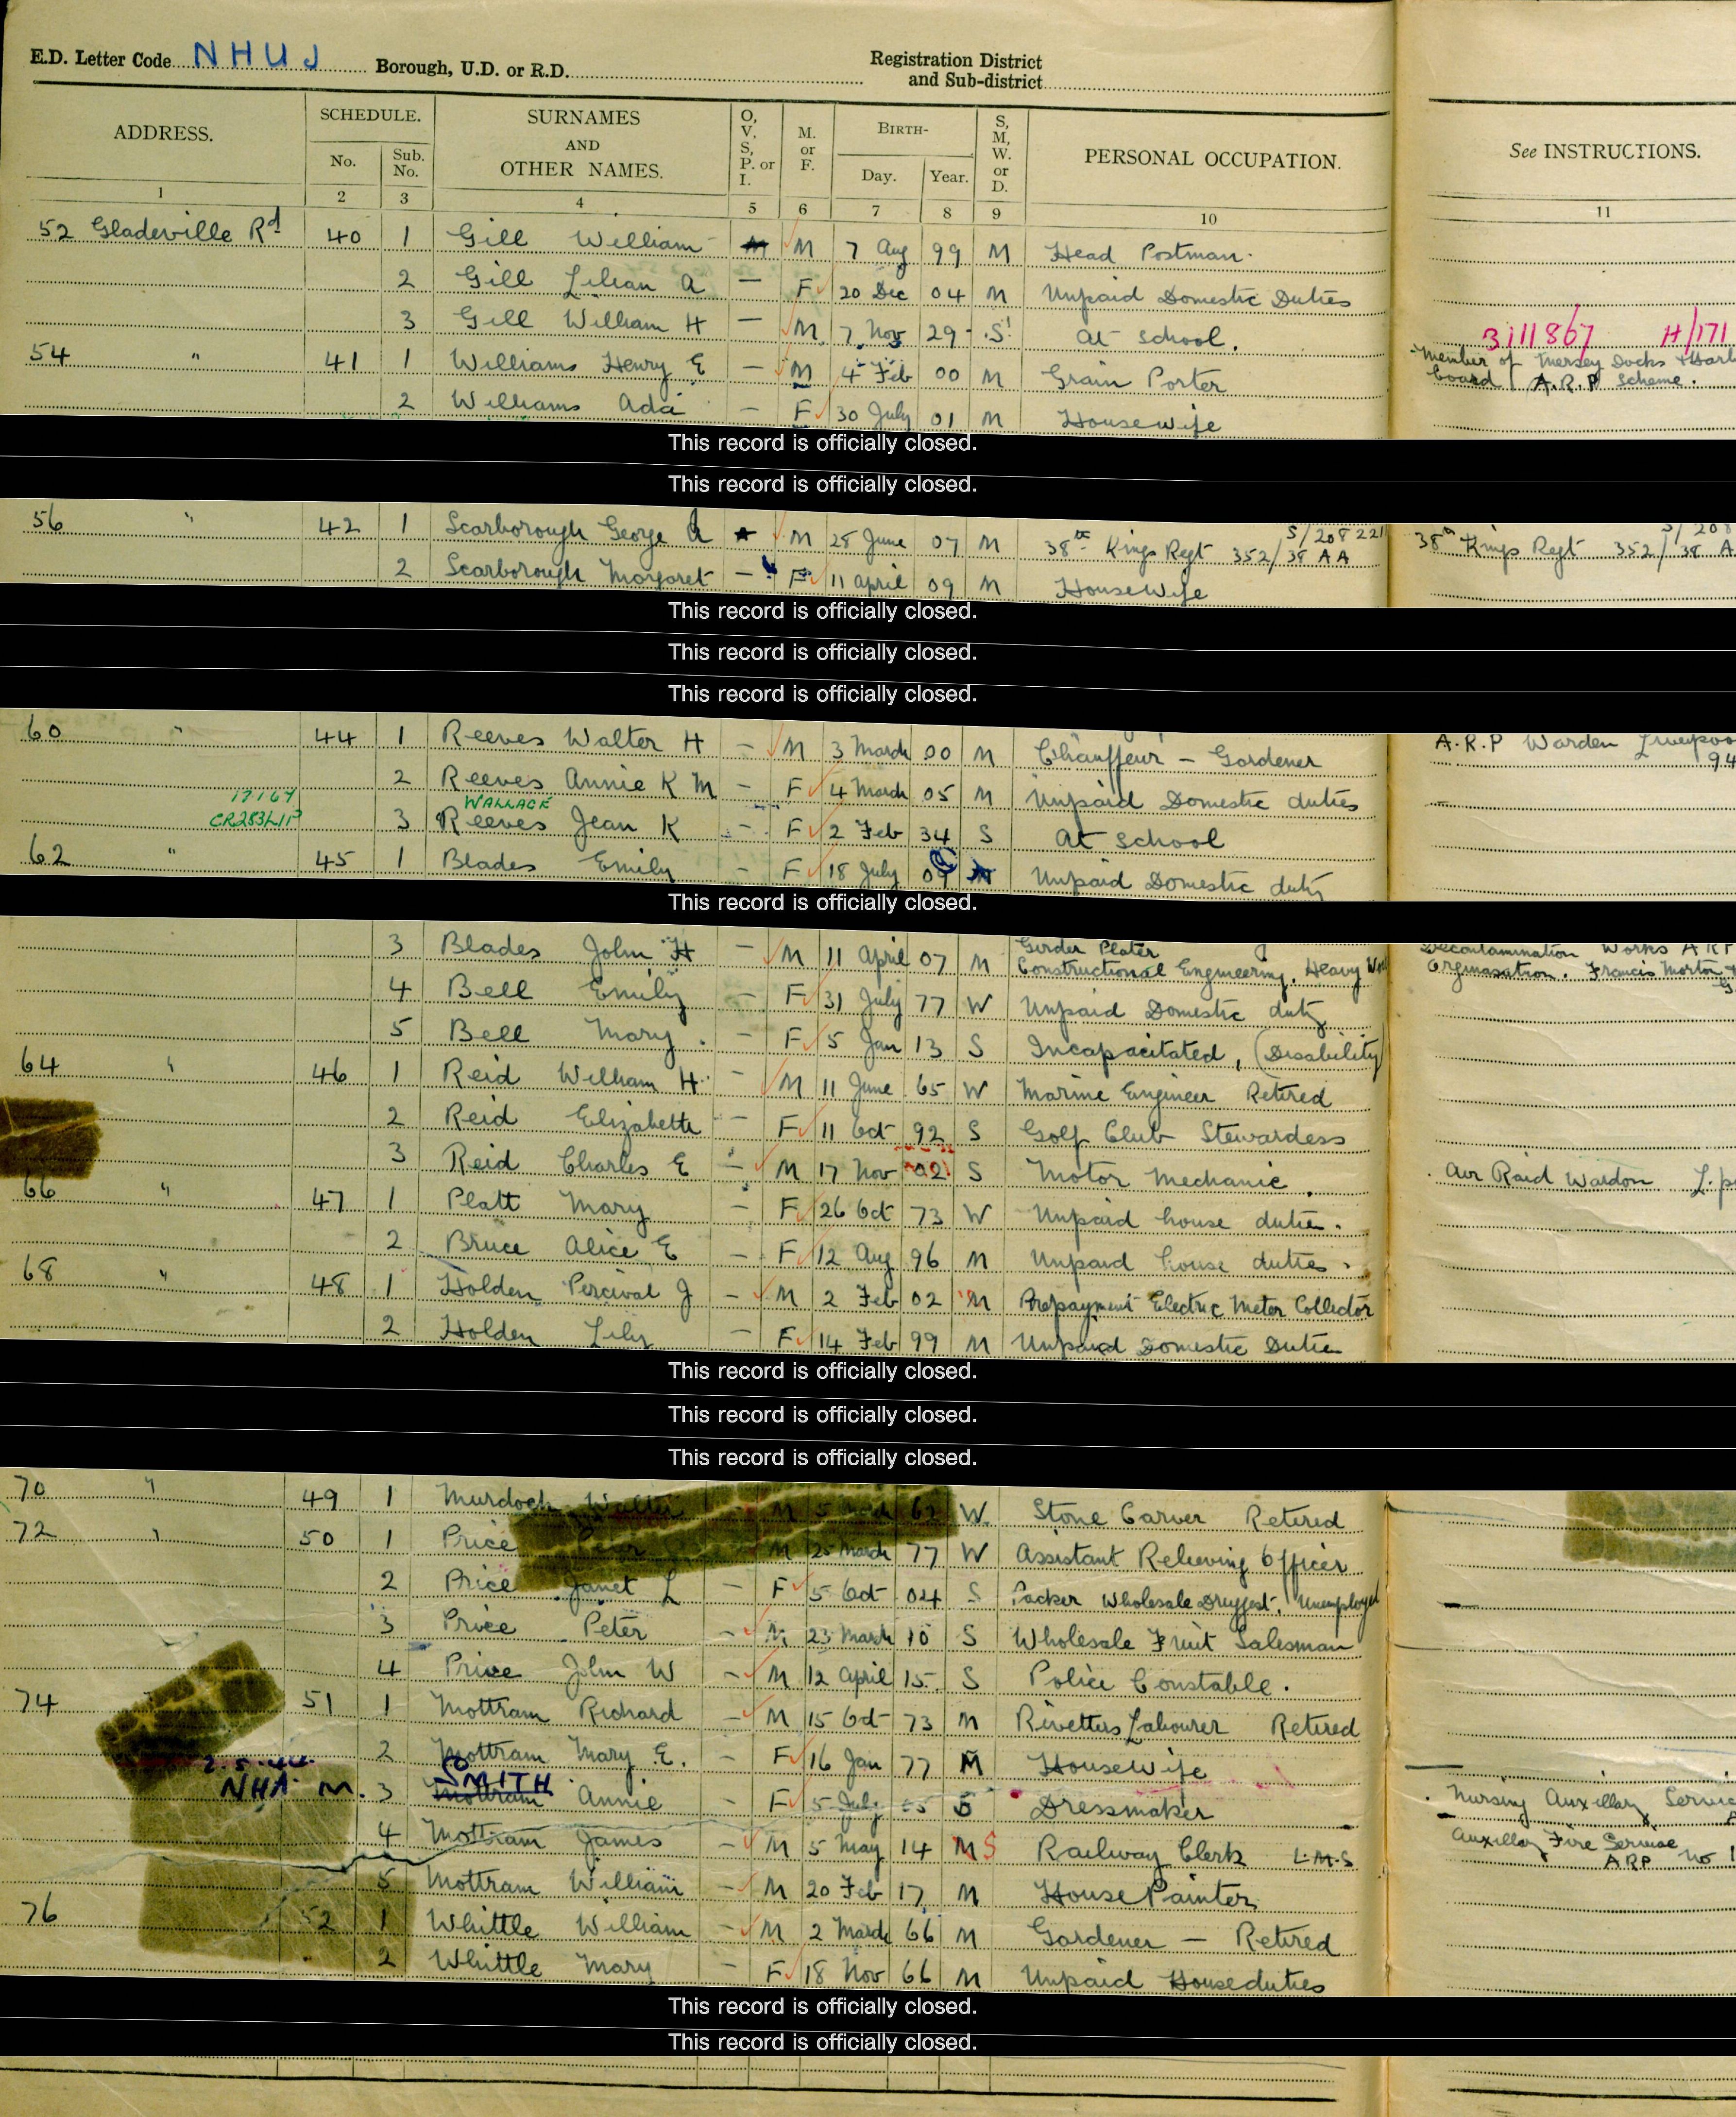 E.D. Letter Code NHUJ Borough, U.D. or R.D. Registration District and Sub-district
ADDRESS. SCHEDULE. No. Sub. No. SURNAMES AND OTHER NAMES. O, V, S, P. or I. M. or F. BIRTH- Day. Year. S, M, W. or D. PERSONAL OCCUPATION. See INSTRUCTIONS.
1 2 3 4 5 6 7 8 9 10 11
52 Gladeville Rd 40 1 Gill William M 7 Aug 99 M Head Postman
2 Gill Lilian A — F 20 Dec 04 M Unpaid Domestic Duties
3 Gill William H — M 7 Nov 29 S At school. 3111867 H/171
54 " 41 1 Williams Henry E — M 4 Feb 00 M Grain Porter Member of Mersey Docks + Harb
board A.R.P scheme.
2 Williams Ada — F 30 July 01 M Housewife
This record is officially closed.
This record is officially closed.
56 " 42 1 Scarborough George A M 28 June 07 M 38th Kings Regt 352/38 AA S/208221 38th Kings Regt 352/38 A S/208
2 Scarborough Margaret — F 11 April 09 M Housewife
This record is officially closed.
This record is officially closed.
This record is officially closed.
60 " 44 1 Reeves Walter H — M 3 March 00 M Chauffeur — Gardener A.R.P Warden Liverpoo
94
2 Reeves Annie K M — F 4 March 05 M Unpaid Domestic duties
17164 WALLACE
CR283LIP 3 Reeves Jean K — F 2 Feb 34 S At School
62 " 45 1 Blades Emily — F 18 July 09 M Unpaid Domestic duty
This record is officially closed.
3 Blades John H — M 11 April 07 M Girder Plater Constructional Engineering, Heavy Work Decontamination Works ARP
Orginasation. Francis Morton
4 Bell Emily — F 31 July 77 W Unpaid Domestic duty
5 Bell Mary — F 5 Jan 13 S Incapacitated, (Disability)
64 " 46 1 Reid William H — M 11 June 65 W Marine Engineer Retired
2 Reid Elizabeth — F 11 Oct 92 S Golf Club Stewardess
3 Reid Charles E — M 17 Nov 02 S Motor Mechanic. Air Raid Wardon L.p
66 " 47 1 Platt Mary — F 26 Oct 73 W Unpaid house dutie.
2 Bruce Alice E — F 12 Aug 96 M Unpaid house duties.
68 " 48 1 Holden Percival J — M 2 Feb 02 M Prepayment Electric Meter Collector
2 Holden Lily — F 14 Feb 99 M Unpaid Domestic Dutie
This record is officially closed.
This record is officially closed.
This record is officially closed.
70 " 49 1 Murdoch Walter M 5 67 W. Stone Carver Retired
72 " 50 1 Price M 25 March 77 W Assistant Relieving Officer
2 Price Janet L — F 5 Oct 04 S Packer Wholesale Druggest. Unemployed
3 Price Peter — M 23 March 10 S Wholesale Fruit Salesman
4 Price John W — M 12 April 15 S Police Constable.
74 51 1 Mottram Richard — M 15 Oct 73 M Rivetters Labourer Retired
2 Mottram Mary E. — F 16 Jan 77 M Housewife
2.5.44 SMITH
NHA M. 3 Mottram Annie — F 5 July 05 S Dressmaker Nursing Auxillary Servic
4 Mottram James — M 5 May 14 M S Railway Clerk L.M.S Auxillary Fire Service
ARP
5 Mottram William — M 20 Feb 17 M House Painter
76 52 1 Whittle William — M 2 March 66 M Gardener — Retired
2 Whittle Mary — F 18 Nov 66 M Unpaid House duties
This record is officially closed.
This record is officially closed.